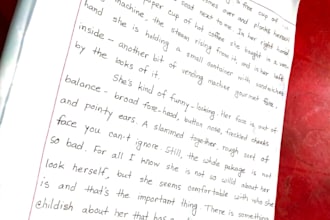 comes over and places herself
seat next to me. In her right hand
paper cup of hot coffee she bought in a
machine, the steam rising from it, and in her left
hand she is holding a small container with sandwiches
inside – another bit of vending machine gourmet fare,
by the looks of it.
She's kind of funny-looking. Her face is out of
balance – broad forehead, button nose, freckled cheeks
and pointy ears. A slammed together, rough sort of
face you can't ignore. Still, the whole package is not
so bad. For all I know she is not so wild about her
look herself, but she seems comfortable with who she
is and that's the important thing. There is something
childish about her that has